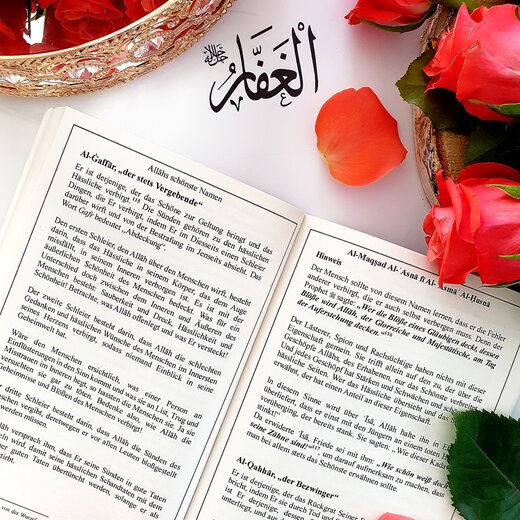 الْغَفَّارُ جل جلاله
Allāhs schönste Namen
Al-Ġaffār, „der stets Vergebende“
Er ist derjenige, der das Schöne zur Geltung bringt und das
Hässliche verbirgt.¹¹⁸ Die Sünden gehören zu den hässlichen
Dingen, die Er verbirgt, indem Er im Diesseits einen Schleier
darüber wirft und von der Bestrafung im Jenseits absieht. Das
Wort Ġafr bedeutet ‚Abdeckung‘.
Den ersten Schleier, den Allāh über den Menschen wirft, besteht
darin, dass das Hässliche in seinem Körper, das den Auge
missfällt, in seinem Inneren verborgen ist. Es ist mit der
äußerlichen Schönheit des Menschen bedeckt. Was für ein
Unterschied doch zwischen dem Inneren und Äußeren des
Menschen besteht: Sauberkeit und Dreck, Hässlichkeit und
Schönheit! Betrachte, was Allāh offenlegt und was Er versteckt!
Der zweite Schleier besteht darin, dass Allāh die schlechten
Gedanken und hässlichen Wünsche des Menschen im Innersten
seines Herzens verbirgt, sodass niemand Einblick in seine
Geheimwelt hat.
Wäre den Menschen ersichtlich, was einer Person an
Einflüsterungen in den Sinn kommt und was sie an List, Trug und
Misstrauen im Innern hegt, so hassten die Menschen sie. Ja sie
versuchten sie gar zu töten. Bedenke also wie Allāh die
Geheimnisse und Blößen des Menschen verbirgt!
dritte Schleier besteht darin, dass Allāh die Sünden des
Menschen vergibt, derentwegen er vor allen Leuten bloßgestellt
werden müssen.
versprach ihm, dass Er seine Sünden in gute Taten
wird, damit seine hässlichen Schandtaten mit dem
guten Taten übertüncht werden, solange er als
Al-Maqṣad Al-ʾAsnā fī Al-ʾAsmāʾ Al-Ḥusnā
Hinweis
Der Mensch sollte von diesem Namen lernen, dass er die Fehler
anderer verbirgt, die er auch selbst verborgen muss. Denn der
Prophet ﷺ sagte: „Wer die Blöße eines Gläubigen deckt, dessen
Blöße wird Allāh, der Glorreiche und Majestätische, am Tag
der Auferstehung decken.“
Der Lästerer, Spion und Rachsüchtige haben nichts mit dieser
Eigenschaft gemein. Sie trifft allein auf den zu, der über die
Geschöpfe Allāhs, des Erhabenen, nur das Schöne erzählt. Denn
jedes Geschöpf hat Stärken und Schwächen und schöne und
hässliche Seiten. Wer das Hässliche übersieht und das Schöne
erwähnt, der hat einen Anteil an dieser Eigenschaft.
In diesem Sinne wird über ʿĪsā, Allāh halte ihn in Ehren,
überliefert, dass er einst mit den Jüngern an einem toten
vorüberging, der bereits stank. Sie sagten: „Wie dieser Kadaver
stinkt!“
Da erwiderte ʿĪsā, Friede sei mit ihm: „Wie schön weiß doch
seine Zähne sind!“, um darauf aufmerksam zu machen, dass
man bei allem stets das Schönste erwähnen sollte.
Al-Qahhār, „der Bezwinger“
Er ist derjenige, der das Rückgrat Seiner
bricht, indem Er sie durch Tod und
ist Er derjenige, dessen
unterliegt, und aus